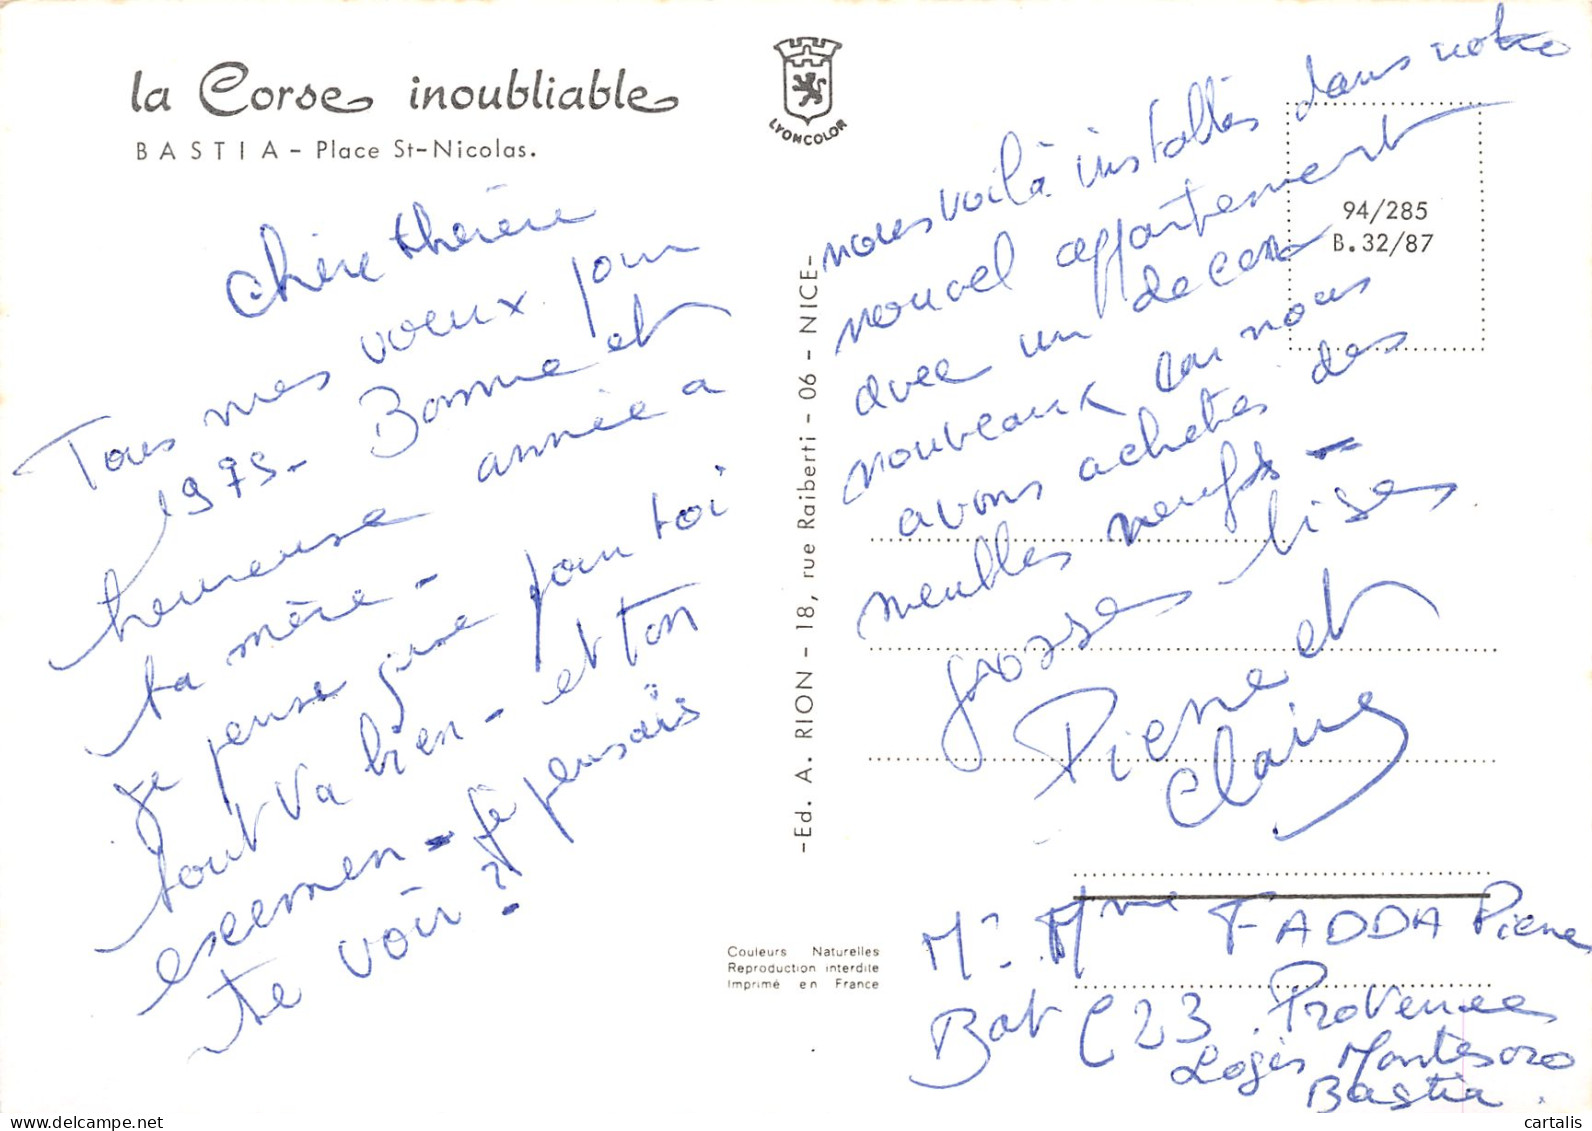 la Corse inoubliable
BASTIA - Place St-Nicolas.
LYONCOLOR
94/285
B.32/87
chère thérèse
Tous mes voeux pour
1975 - Bonne et
heureuse année a
ta mère -
je pense que pour toi
tout va bien - et ton
examen - je pensais
te voir ?
-Ed. A. RION - 18, rue Raiberti - 06 - NICE-
nous voilà installés dans notre
nouvel appartement
avec un decor
nouveaux car nous
avons achetés des
meubles neufs -
grosses bises
Pierre et
Claire
Couleurs Naturelles
Reproduction interdite
Imprimé en France
Mr. Mme FADDA Pierre
Bat C23 Provence
Logis Montesoro
Bastia.
cartalis